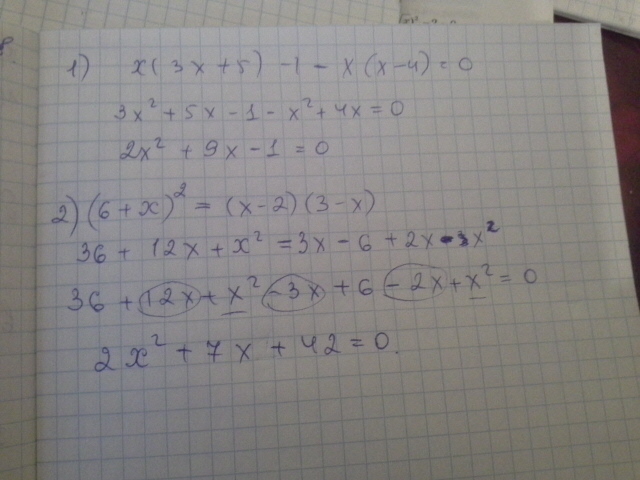 1) x(3x+5)-1-x(x-4)=0
3x²+5x-1-x²+4x=0
2x²+9x-1=0
2)(6+x)²=(x-2)(3-x)
36+12x+x²=3x-6+2x-x²
36+12x+x²-3x+6-2x+x²=0
2x²+7x+42=0.